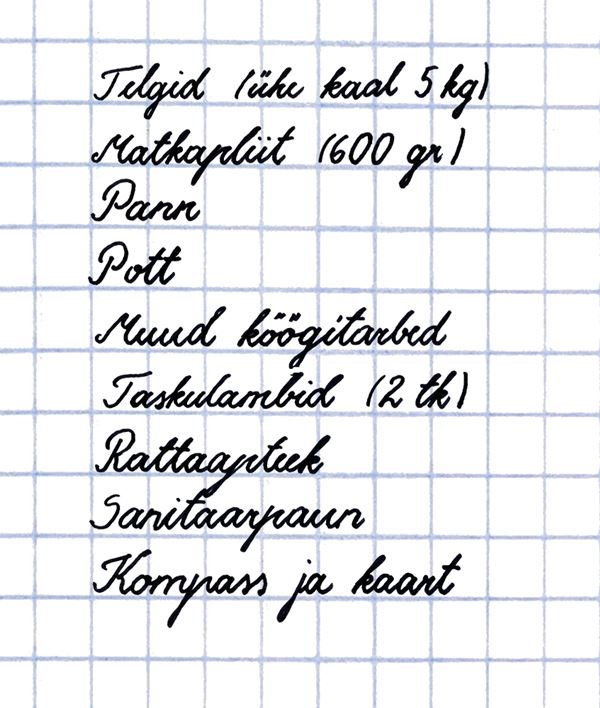 Telgid (ühe kaal 5 kg)
Matkapliit (600 gr)
Pann
Pott
Muud köögitarbed
Taskulambid (2 tk)
Rattaapteek
Sanitaarpaun
Kompass ja kaart